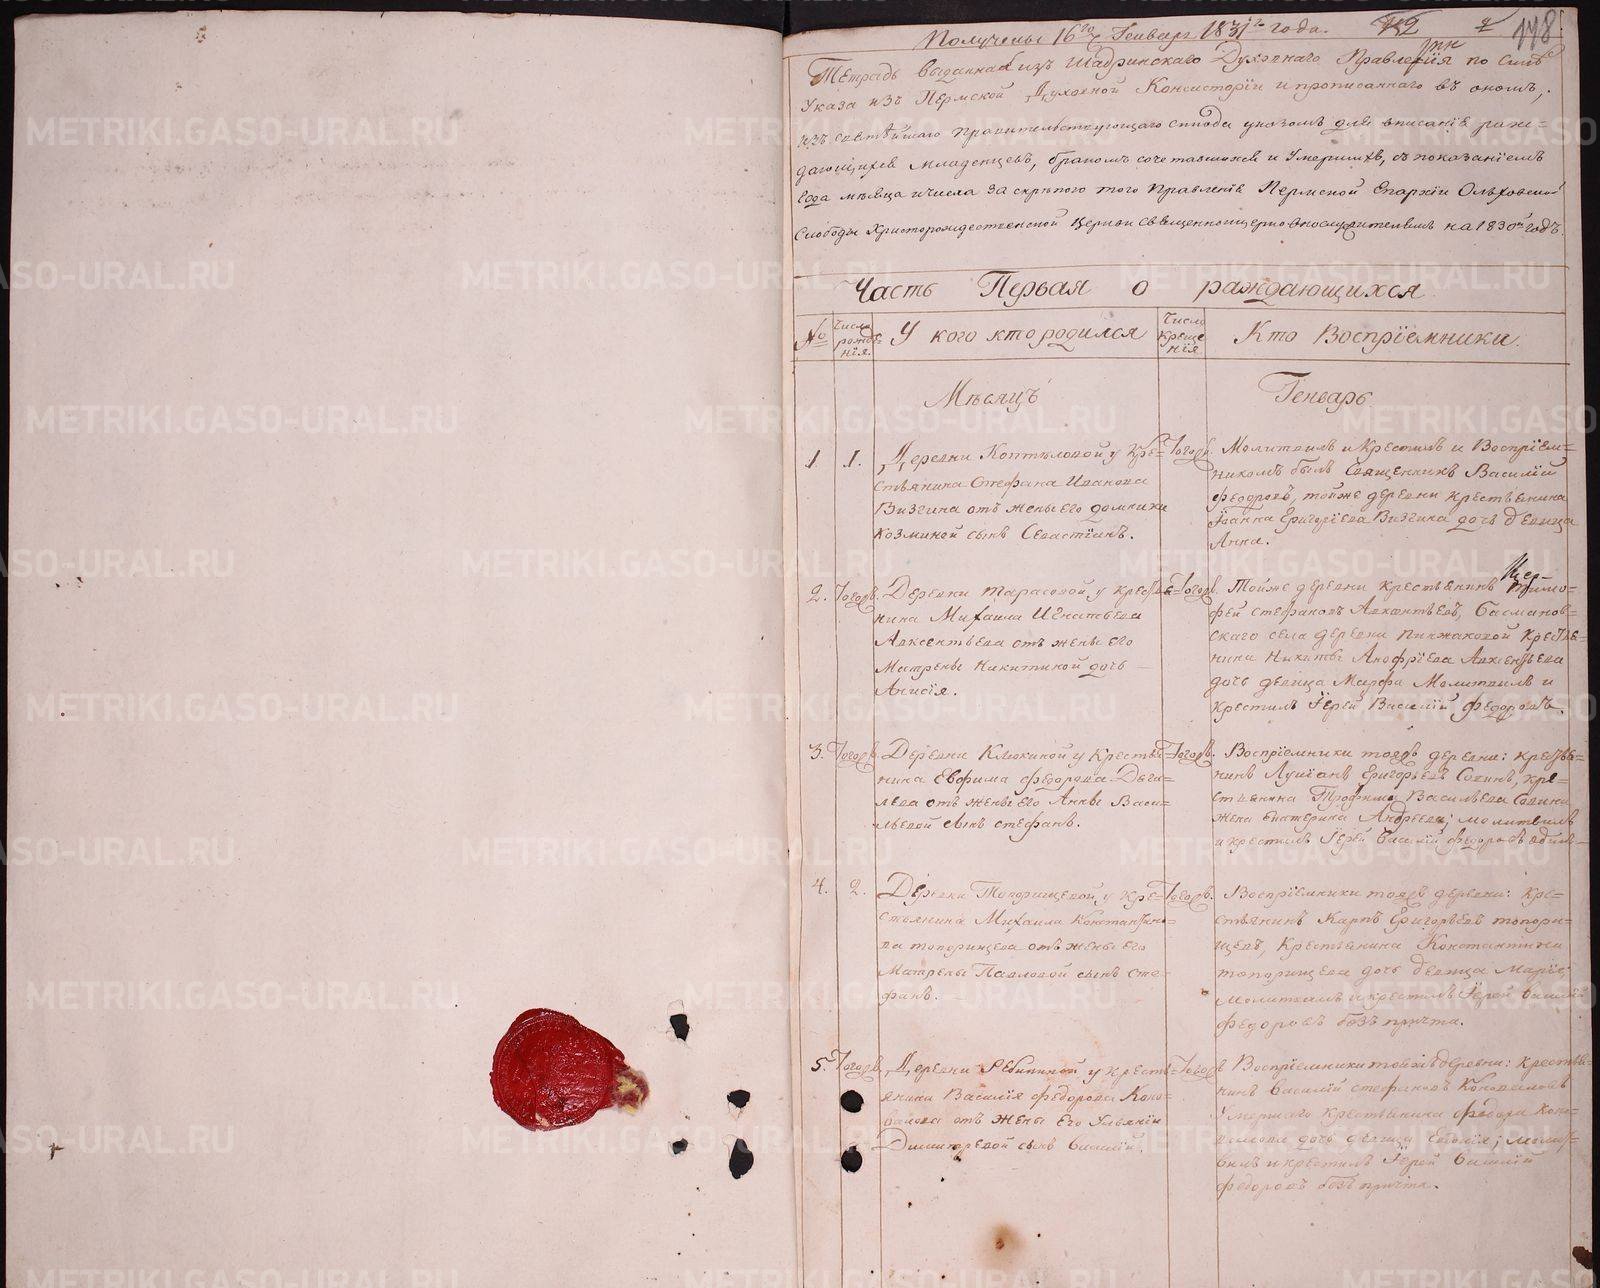 Получены 16го Генваря 1831го года. 112 2 148
Тетрадь выданная изъ Шадринскаго Духовнаго Правленія по силѣ
Указа изъ Пермской Духовной Консисторіи и прописаннаго въ ономъ,
изъ святѣйшаго правительствующаго синода указомъ для вписанія раж-
дающихся младенцевъ, бракомъ сочетавшихся и Умершихъ, съ показаніемъ
Года мѣсяца и числа за скрѣпою того Правленія Пермской Епархіи Ольховской
Слободы Христорождественской Церкви священноцерковнослужителямъ на 1830й годъ.
Часть Первая о раждающихся
№ Число рожденія. У кого кто родился Число крещенія Кто Воспріемники.
Мѣсяцъ Генварь
1 1. Деревни Коптѣловой у кре=
стьянина Стефана Иванова
Визгина отъ жены его домники
Козминой сынъ Севастіянъ.
Тогожъ. Молитвилъ и Крестилъ и Воспріем=
никомъ былъ Священникъ Василій
Федоровъ, тойже деревни крестьянина
Іоанна Григоріева Визгина дочь дѣвица
Анна.
2. Тогожъ. Деревни Тарасовой у крестья=
нина Михаила Игнатьева
Авксентьева отъ жены его
Матрены Никитиной дочь
Анисія.
Тогожъ. Тойже деревни крестьянинъ Тимо-
фей стефановъ Авксентьевъ, Басманов-
скаго села деревни Пижаковой крестья=
нина Никиты Анофріева Авксентьева
дочь дѣвица Марфа Молитвилъ и
крестилъ Іерей Василій Федоровъ.
3. Тогожъ. Деревни Клюкиной у Крестья=
нина Евфима федорова Дега-
лева отъ жены его Анны Васи-
льевой сынъ стефанъ.
Тогожъ. Воспріемники тояжъ деревни: крестья=
нинъ Лукіанъ Григорьевъ Савинъ, кре=
стьянина Трофима Васильева Савина
жена Екатерина Андреева; молитвилъ
и крестилъ Іерей Василій Федоровъ одинъ.
4. 2. Деревни Топорищевой, у кре=
стьянина Михаила Константино-
ва топорищева отъ жены его
Матрены Павловой сынъ сте-
фанъ.
Тогожъ. Воспріемники тояжъ деревни: кре=
стьянинъ Карпъ Григорьевъ топори-
щевъ, Крестьянина Константина
топорищева дочь дѣвица Марія;
молитвилъ и крестилъ Іерей Василій
Федоровъ безъ причта.
5. Тогожъ. Деревни Рябининой у кресть=
янина Василія федорова Коно-
валова отъ жены его Ульяніи
Димитріевой сынъ Василій.
Тогожъ Воспріемники тойже деревни: крестья=
нинъ Василій стефановъ Коноваловъ
Умершаго крестьянина Федора Коно-
валова дочь дѣвица Евгенія; молит-
вилъ и крестилъ Іерей Василій
Федоровъ безъ причта.